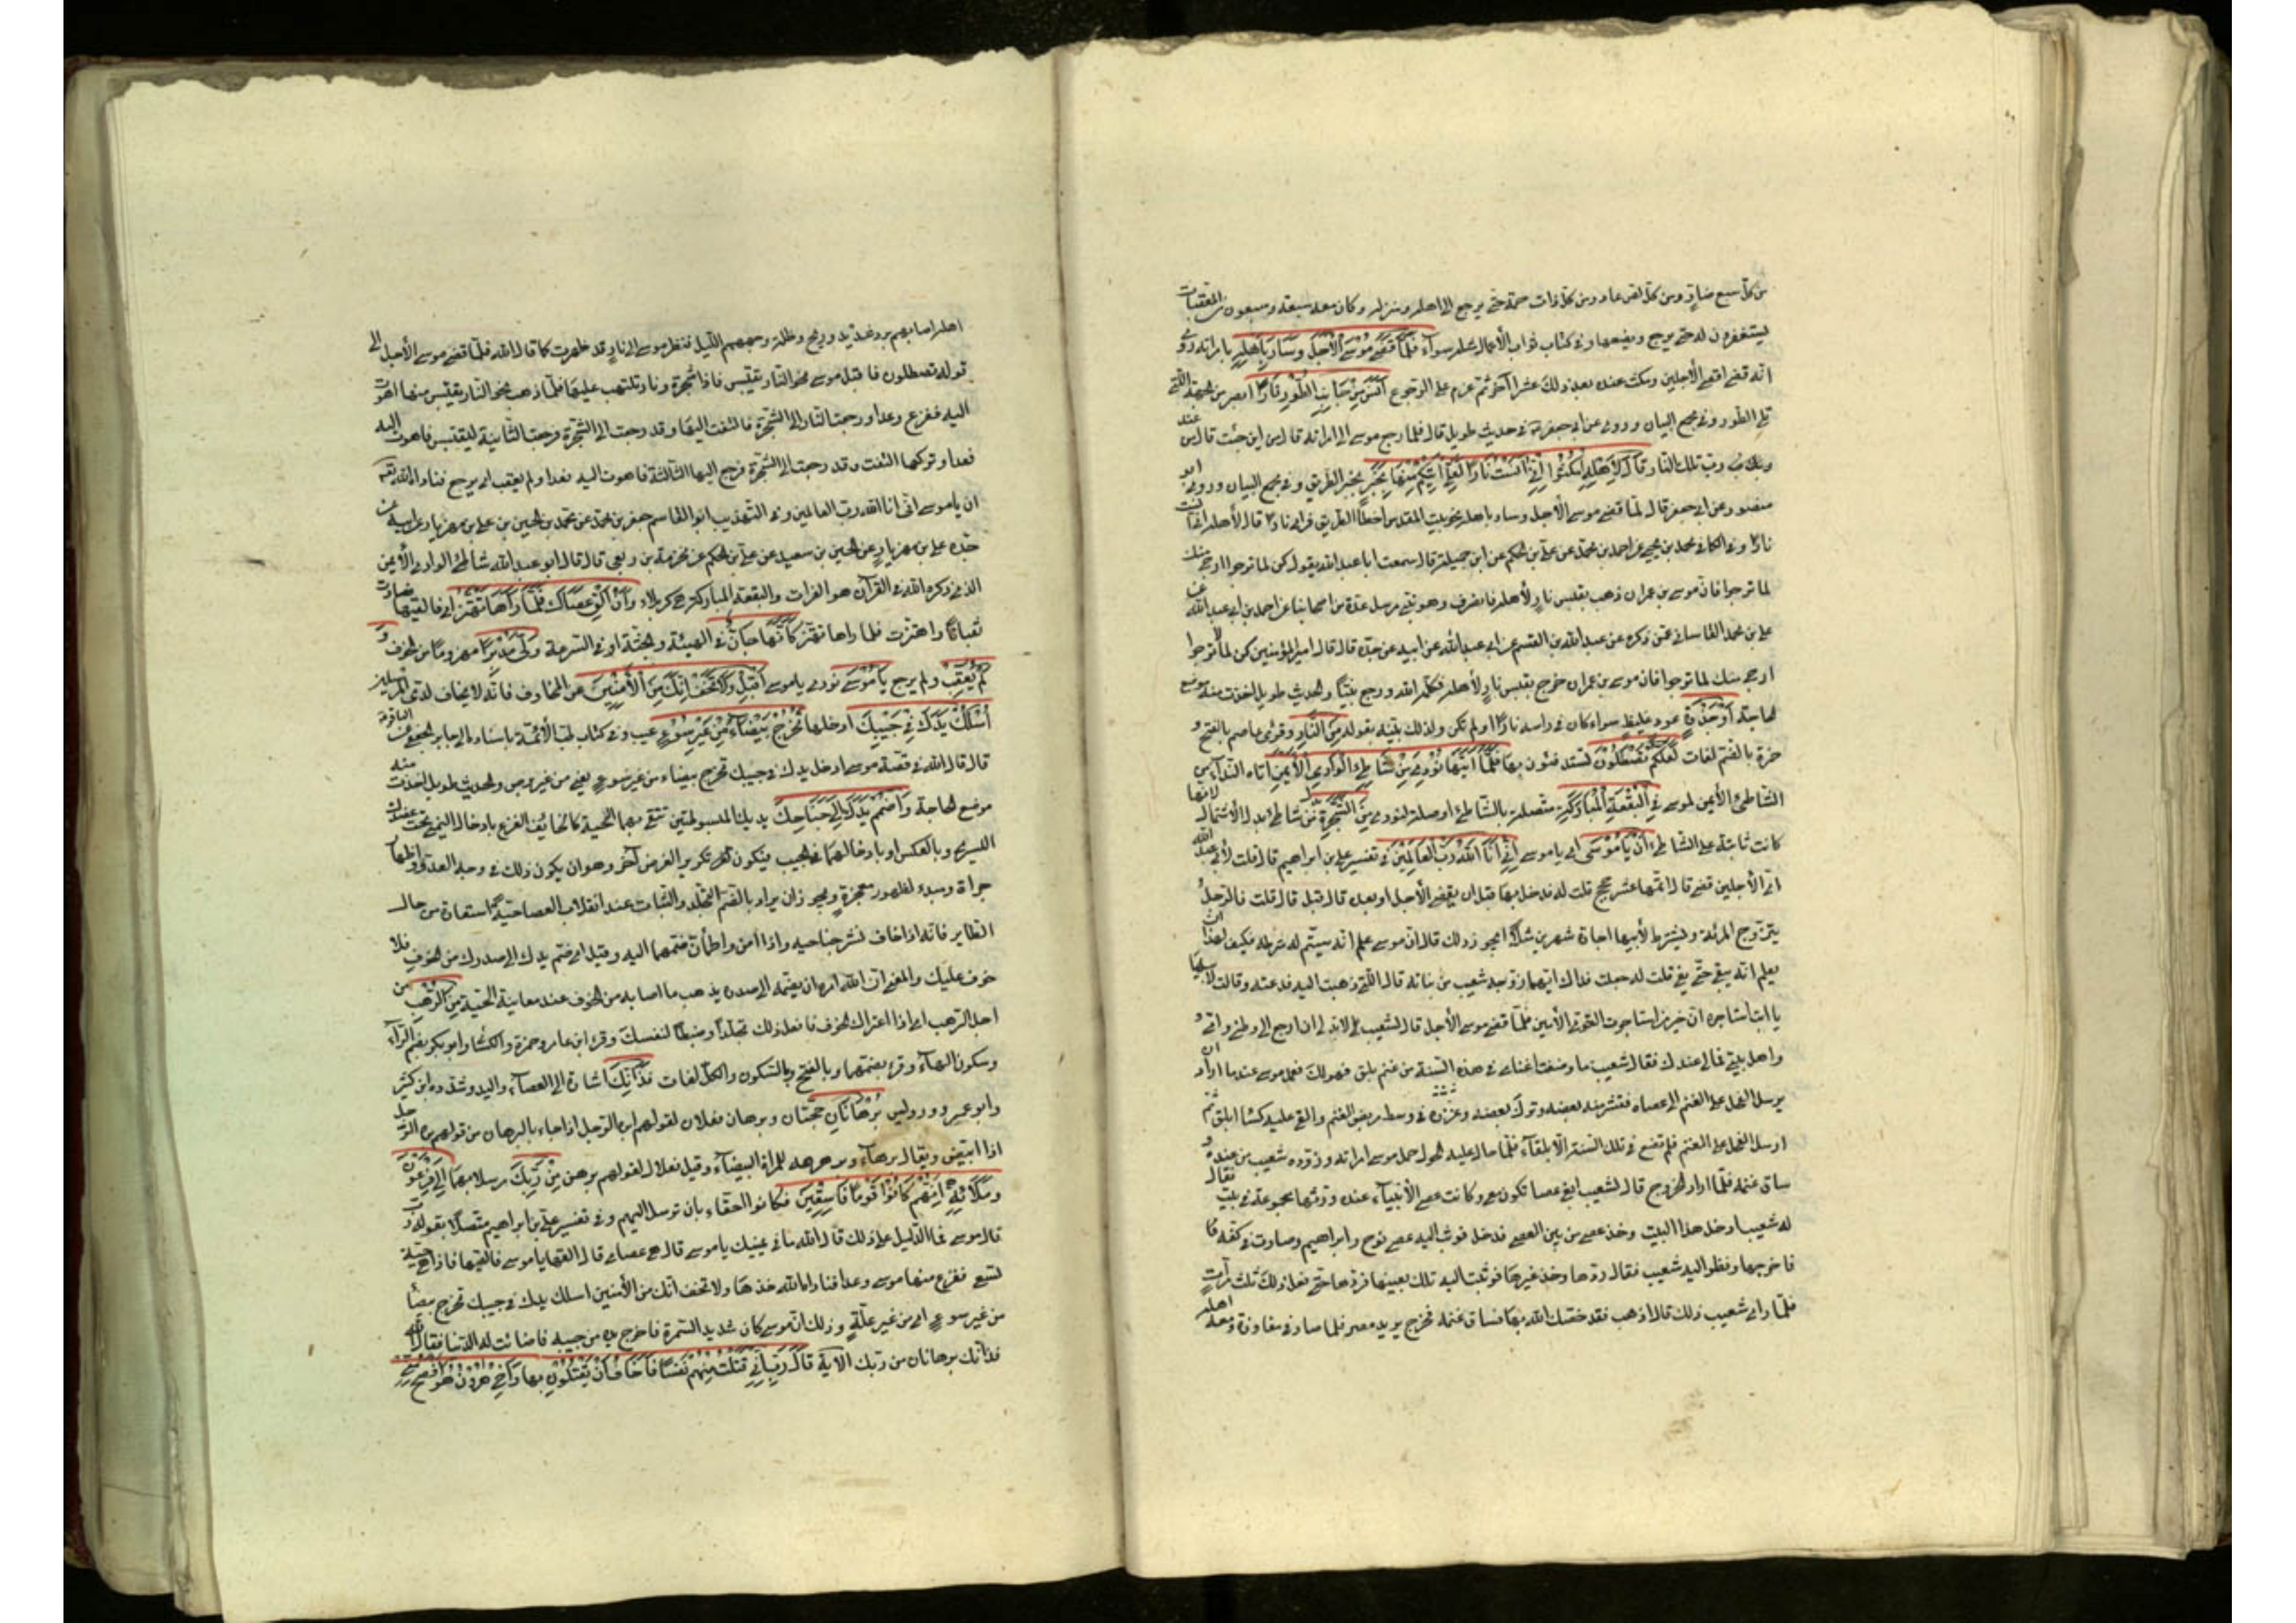 من كل سبع ضار ومن كل لص عاد ومن كل ذات حمة حتى يرجع الى اهله ومنزله وكان معه سبعة وسبعون من المعقبات
يستغفرون له حتى يرجع ويضعها وفي كتاب ثواب الأعمال مثله سواء فَلَمَّا قَضَى مُوسَى الْأَجَلَ وَسَارَ بِأَهْلِهِ بامراته روى
انه قضى اقصى الأجلين ومكث عنده بعد ذلك عشرا آخر ثم عزم على الرجوع آنَسَ مِنْ جَانِبِ الطُّورِ نَارًا ابصر من الجهة التي
تلي الطور وفي مجمع البيان وروى عن ابي جعفر في حديث طويل قال فلما رجع موسى الى امراته قالت من اين جئت قال من عند
رب تلك النار قَالَ لِأَهْلِهِ امْكُثُوا إِنِّي آنَسْتُ نَارًا لَعَلِّي آتِيكُمْ مِنْهَا بِخَبَرٍ بخبر الطريق وفي مجمع البيان وروى ابو
بصير عن ابي جعفر قال لما قضى موسى الأجل وسار باهله نحو بيت المقدس اخطأ الطريق فراى نارا قال لأهله اني آنست
نارا وفي الكافي محمد بن يحيى عن احمد بن محمد عن علي بن الحكم عن ابن جميلة قال سمعت ابا عبد الله يقول كن لما لا ترجوا ارجى منك
لما ترجوا فان موسى بن عمران ذهب يقتبس نارا لأهله فانصرف وهو نبي مرسل عدة من اصحابنا عن احمد بن ابي عبد الله عن
علي بن محمد القاساني عمن ذكره عن عبد الله بن القسم عن ابي عبد الله عن ابيه عن جده قال قال امير المؤمنين كن لما لا ترجوا
ارجى منك لما ترجوا فان موسى بن عمران خرج يقتبس نارا لأهله فكلمه الله ورجع نبيا والحديث طويل اخذت منه موضع
الحاجة أَوْ جَذْوَةٍ عود غليظ سواء كان في راسه نارا او لم تكن ولذلك بينه بقوله مِنَ النَّارِ وقرئ عاصم بالفتح و
حمزة بالضم لغات لَعَلَّكُمْ تَصْطَلُونَ تستدفئون بها فَلَمَّا أَتَاهَا نُودِيَ مِنْ شَاطِئِ الْوَادِ الْأَيْمَنِ اتاه النداء من
الشاطئ الأيمن لموسى فِي الْبُقْعَةِ الْمُبَارَكَةِ متصلة بالشاطئ او صلة لنودي مِنَ الشَّجَرَةِ من شاطئ بدل الأشتمال لانها
كانت ثابتة على الشاطئ أَنْ يَا مُوسَى اي يا موسى إِنِّي أَنَا اللَّهُ رَبُّ الْعَالَمِينَ في تفسير علي بن ابراهيم قال قلت لأبي عبد الله
اي الأجلين قضى قال اتمها عشر حجج قلت له فدخل بها قبل ان يقضى الأجل او بعده قال قبل قال قلت فالرجل
يتزوج المرئة ويشترط لأبيها اجارة شهرين مثلا ايجوز ذلك قال ان موسى علم انه سيتم له شرطه فكيف لهذا ان
يعلم انه يبقى حتى يفي قلت له جعلت فداك ايتهما زوجه شعيب من بناته قال التي ذهبت اليه فدعته وقالت لابيها
يا ابت استاجره ان خير من استاجرت القوي الأمين فلما قضى موسى الأجل قال لشعيب لا بد لي ان ارجع الى وطني وامي و
واهل بيتي فما لي عندك فقال شعيب ما وضعت اغنامي في هذه السنة من غنم بلق فهو لك فعمد موسى عند ما اراد ان
يرسل الفحل على الغنم الى عصاه فقشر منه بعضه وترك بعضه وغرزه في وسط مربض الغنم والقى عليه كساء ابلق ثم
ارسل الفحل على الغنم فلم تضع في تلك السنة الا بلقاء فلما حال عليه الحول حمل موسى امراته وزوده شعيب من عنده و
ساق غنمه فلما اراد الخروج قال لشعيب ابغي عصا تكون معي وكانت عصى الأنبياء عنده ورثها مجموعة في بيت فقال
له شعيب ادخل هذا البيت وخذ عصى من بين العصى فدخل فوثب اليه عصى نوح وابراهيم وصارت في كفه
فاخرجها ونظر اليه شعيب فقال ردها وخذ غيرها فوثبت اليه تلك بعينها فردها حتى فعل ذلك ثلث مرات
فلما راى شعيب ذلك قال اذهب فقد خصك الله بها فساق غنمه فخرج يريد مصر فلما صار في مفازة ومعه اهله
اهله اصابهم برد شديد وريح وظلمة وجنهم الليل فنظر موسى الى نار قد ظهرت كما قال الله فلما قضى موسى الأجل الى
قوله تصطلون فاقبل موسى نحو النار يقتبس فاذا شجرة ونار تلتهب عليها فلما ذهب نحو النار يقتبس منها اهوت
اليه ففزع وعدا ورجعت النار الى الشجرة فالتفت اليها وقد رجعت الى الشجرة فرجع الثانية ليقتبس فاهوت اليه
فعدا وتركها التفت وقد رجعت الى الشجرة فرجع اليها الثالثة فاهوت اليه فعدا ولم يعقب اي يرجع فناداه الله تعالى
ان يا موسى اني انا الله رب العالمين وفي التهذيب ابو القاسم جعفر بن محمد عن محمد بن الحسين بن علي بن مهزيار عن ابيه عن
جده علي بن مهزيار عن الحسين بن سعيد عن علي بن الحكم عن مخرمة بن ربعي قال قال ابو عبد الله شاطئ الوادي الأيمن
الذي ذكره الله في القرآن هو الفرات والبقعة المباركة هي كربلاء وَأَنْ أَلْقِ عَصَاكَ فَلَمَّا رَآهَا تَهْتَزُّ اي فالقيها فصارت
ثعبانا واهتزت فلما راها تهتز كَأَنَّهَا جَانٌّ في الهيئة والجثة او في السرعة وَلَّى مُدْبِرًا مهزوما من الخوف وَ
لَمْ يُعَقِّبْ ولم يرجع يَا مُوسَى نودي يا موسى أَقْبِلْ وَلَا تَخَفْ إِنَّكَ مِنَ الْآمِنِينَ من المخاوف فانه لا يخاف لدي المرسلين
اُسْلُكْ يَدَكَ فِي جَيْبِكَ ادخلها تَخْرُجْ بَيْضَاءَ مِنْ غَيْرِ سُوءٍ عيب وفي كتاب طب الأئمة باسناده الى جابر الجعفي عن الباقر
قال قال الله في قصة موسى ادخل يدك في جيبك تخرج بيضاء من غير سوء يعني من غير برص والحديث طويل اخذت منه
موضع الحاجة وَاضْمُمْ يَدَكَ إِلَى جَنَاحِكَ يديك المبسوطتين تتقي بهما الحية كالخائف الفزع بادخال اليمنى تحت عضد
اليسرى وبالعكس او بادخالهما في الجيب فيكون تكرير الغرض آخر وهو ان يكون ذلك في وجه العدو اظهار
جراة ومبدء لظهور معجزة ويجوز ان يراد بالضم التجلد والثبات عند انقلاب العصا حية استعارة من حال
الطاير فانه اذا خاف نشر جناحيه واذا امن واطمأن ضمهما اليه وقيل اي ضم يدك الى صدرك من الخوف فلا
خوف عليك والمعنى ان الله امره ان يضم يده الى صدره يذهب ما اصابه من الخوف عند معاينة الحية مِنَ الرَّهْبِ من
اجل الرهب اي اذا اعتراك الخوف فافعل ذلك تجلدا وضبطا لنفسك وقرء ابن عامر وحمزة والكسائي وابو بكر بضم الراء
وسكون الهاء وقرء بضمهما وبالفتح وبالسكون والكل لغات فَذَانِكَ اشارة الى العصا واليد وشدده ابن كثير
وابو عمرو ورويس بُرْهَانَانِ حجتان وبرهان فعلان لقولهم ابره الرجل اذا جاء بالبرهان من قولهم بره الرجل
اذا ابيض ويقال برهاء وبرهرهة للمراة البيضاء وقيل فعلال لقولهم برهن مِنْ رَبِّكَ مرسلا بهما إِلَى فِرْعَوْنَ
وَمَلَائِهِ إِنَّهُمْ كَانُوا قَوْمًا فَاسِقِينَ فكانوا احقاء بان نرسل اليهم وفي تفسير علي بن ابراهيم متصلا بقوله رب
قال موسى فما الدليل على ذلك قال الله ما في يمينك يا موسى قال هي عصاي قال القها يا موسى فالقيها فاذا هي حية
تسعى ففزع منها موسى وعدا فناداه الله خذها ولا تخف انك من الأمنين اسلك يدك في جيبك تخرج بيضاء
من غير سوء اي من غير علة وذلك ان موسى كان شديد السمرة فاخرج يده من جيبه فاضائت له الدنيا فقال الله
فذانك برهانان من ربك الاية قَالَ رَبِّ إِنِّي قَتَلْتُ مِنْهُمْ نَفْسًا فَأَخَافُ أَنْ يَقْتُلُونِ بها وَأَخِي هَارُونُ هُوَ أَفْصَحُ مِنِّي